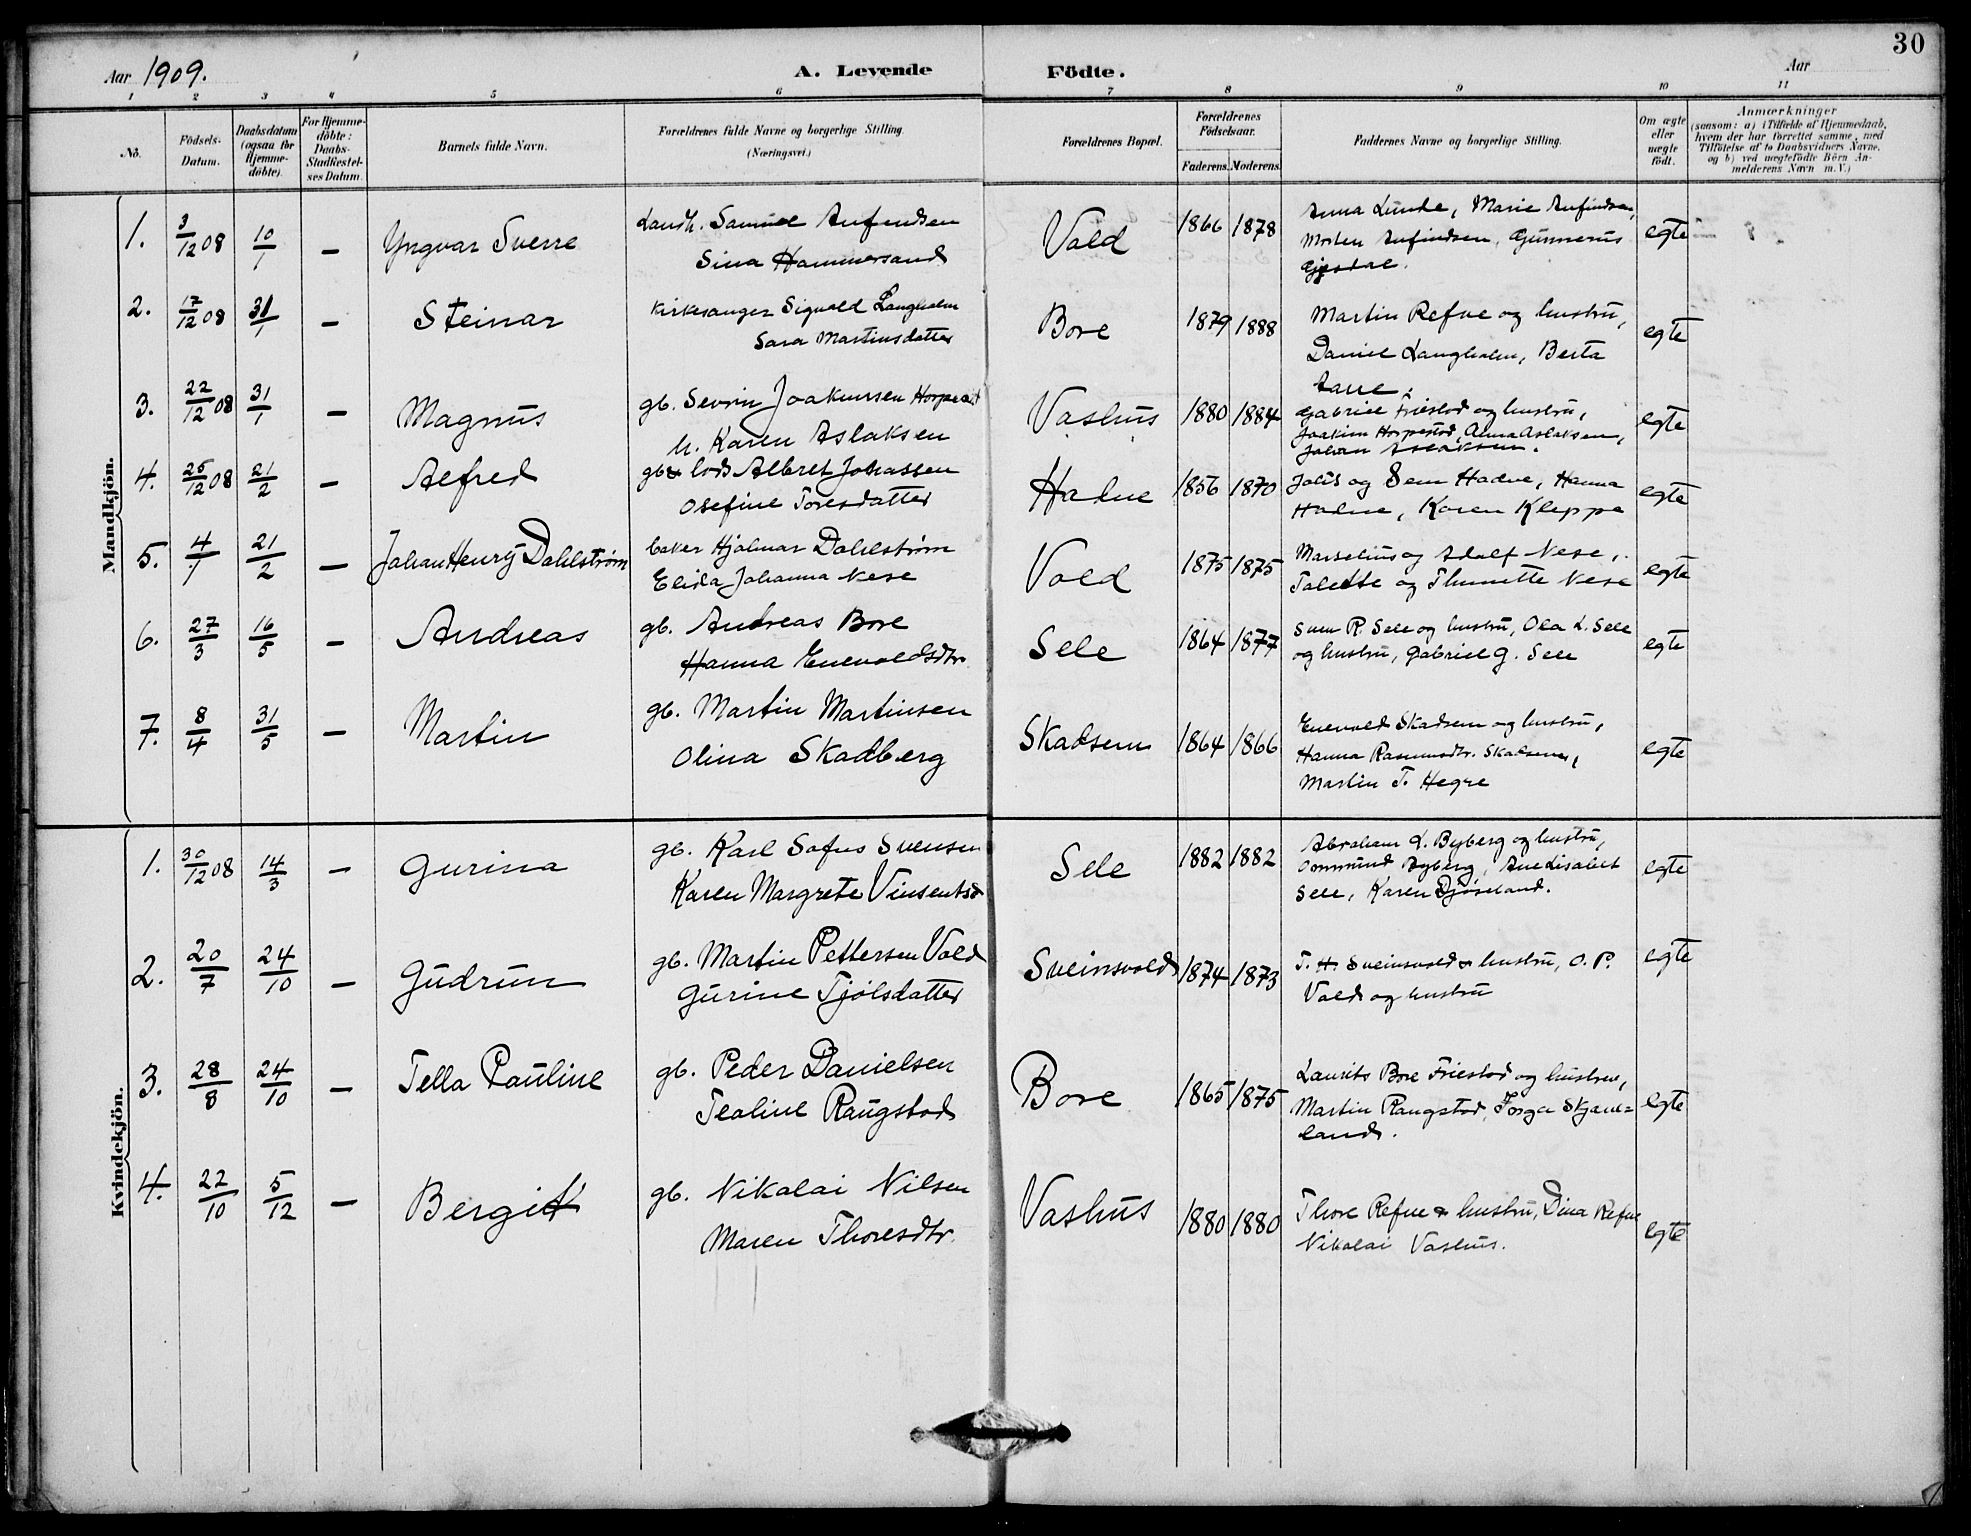 30
Aar 1909.
A. Levende Födte.
Aar
1 2 3 4 5 6 7 8 9 10 11
No.
Födsels-Datum.
Daabsdatum (ogsaa for Hjemme-döbte).
For Hjemme-döbte: Daabs-Stadfæstel-ses Datum.
Barnets fulde Navn.
Forældrenes fulde Navne og borgerlige Stilling. (Næringsvei.)
Forældrenes Bopæl.
Forældrenes Födselsaar.
Faderens. Moderens.
Faddernes Navne og borgerlige Stilling.
Om ægte eller uægte födt.
Anmærkninger
(saasom: a) i Tilfælde af Hjemmedaab,
hvem der har forrettet samme, med
Tilföielse af to Daabsvidners Navne,
og b) ved uægtefödte Börn An-
melderens Navn m.V.)
Mandkjön.
1. 3/12 08 10/1 — Yngvar Sverre
Landh. Samuel Anfindsen
Sina Hammersand
Vold 1866 1878
Anna Lunde, Marie Anfindsen,
Morten Anfindsen, Gunnerus
Gjesdal.
egte
2. 17/12 08 31/1 — Steinar
Kirkesanger Sigvald Langholm
Sara Martinsdatter
Bore 1879 1888
Martin Refve og hustru,
Daniel Langholm, Berta
Aarre.
egte
3. 22/12 08 31/1 — Magnus
gb. Sevrin Joakimsen Horpestad
h. Karen Aslaksen
Vashus 1880 1884
Gabriel Friestad og hustru,
Joakim Horpestad, Anna Aslaksen,
Johan Aslaksen.
egte
4. 25/12 08 21/2 — Alfred
gb & lods Albret Johassen
Osefine Toresdatter
Hadne 1856 1870
Jolis og Sem Hadne, Hanna
Hadne, Karen Kleppe
egte
5. 4/1 21/2 — Johan Henry Dahlstrøm
baker Hjalmar Dahlstrøm
Elida Johanna Nese
Vold 1875 1875
Marselius og Adolf Nese,
Talette og Thunette Nese
egte
6. 27/3 16/5 — Andreas
gb. Andreas Bore
Hanna Enevoldsdtr.
Sele 1864 1877
Sven R. Sele og hustru, Ola L. Sele
og hustru, Gabriel G. Sele
egte
7. 8/4 31/5 — Martin
gb. Martin Martinsen
Olina Skadberg
Skadsem 1864 1866
Enevold Skadsem og hustru,
Hanna Rasmusdtr. Skadsem,
Martin T. Hegre
egte
Kvindekjön.
1. 30/12 08 14/3 — Gurina
gb. Karl Sofus Svensen
Karen Margrete Vinsentsd
Sele 1882 1882
Abraham L. Byberg og hustru,
Ommund Byberg, Ane Lisabet
Sele, Karen Djöseland.
egte
2. 20/7 24/10 — Gudrun
gb. Martin Pettersen Vold
Gurine Tjölsdatter
Sveinsvold 1874 1873
T. H. Sveinsvold & hustru, O. P.
Vold og hustru
egte
3. 28/8 24/10 — Tella Pauline
gb. Peder Danielsen
Tealine Raugstad
Bore 1865 1875
Laurits Bore Friestad og hustru,
Martin Raugstad, Torger Skjæve=
land.
egte
4. 22/10 5/12 — Bergit
gb. Nikolai Nilsen
Maren Thoresdtr.
Vashus 1880 1880
Thore Refve & hustru, Dina Refve
Nikolai Vashus.
egte